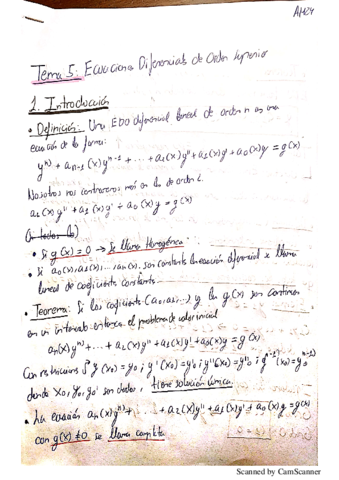 AM24
Tema 5: Ecuaciones Diferenciales de Orden Superior
1. Introducción
• Definición: Una EDO diferencial lineal de orden n es una
ecuación de la forma:
yⁿ⁾ + aₙ₋₁(x)yⁿ⁻¹ + ... + a₂(x)y'' + a₁(x)y' + a₀(x)y = g(x)
Nosotros nos centraremos más en las de orden 2.
a₂(x)y'' + a₁(x)y' + a₀(x)y = g(x)
• Si g(x) = 0 → Se llama homogénea.
• Si a₀(x), a₁(x), ..., aₙ(x) son constantes la ecuación diferencial se llama
lineal de coeficientes constantes.
• Teorema: Si los coeficientes (a₀, a₁...) y la g(x) son continuas
en un intervalo entonces el problema de valor inicial
aₙ(x)yⁿ⁾ + ... + a₂(x)y'' + a₁(x)y' + a₀(x)y = g(x)
Con restricciones y(x₀) = y₀; y'(x₀) = y'₀; y''(x₀) = y''₀; yⁿ⁻¹⁾(x₀) = y₀ⁿ⁻¹⁾
donde x₀, y₀, y₀' son dados, tiene solución única.
• La ecuación aₙ(x)yⁿ⁾ + ... + a₂(x)y'' + a₁(x)y' + a₀(x)y = g(x)
con g(x) ≠ 0 se llama completa
Scanned by CamScanner